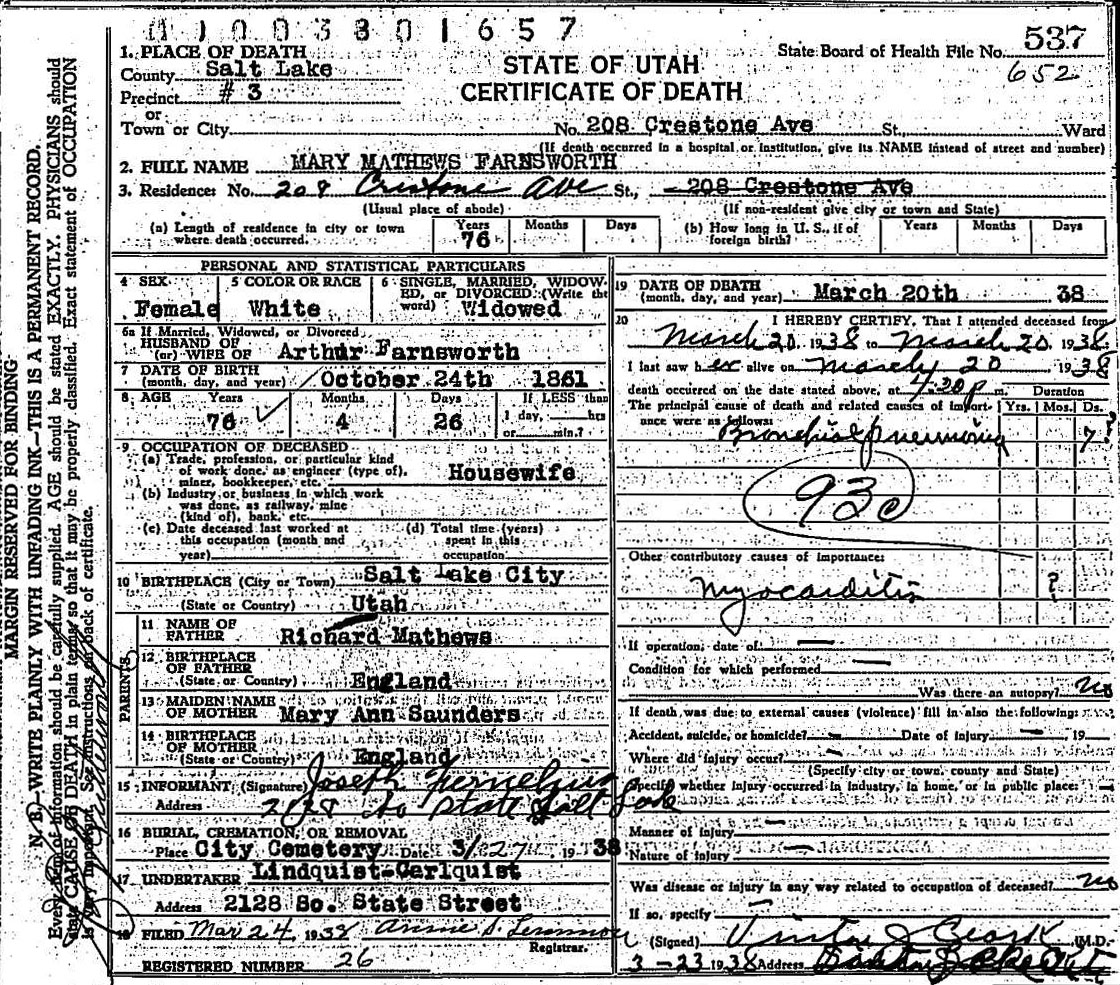 1003801657
1. PLACE OF DEATH
County Salt Lake
Precinct # 3
or
Town or City
STATE OF UTAH
CERTIFICATE OF DEATH
State Board of Health File No. 537
652
No. 208 Crestone Ave St., Ward
(If death occurred in a hospital or institution, give its NAME instead of street and number)
2. FULL NAME MARY MATHEWS FARNSWORTH
3. Residence: No. 208 Crestone Ave St., 208 Crestone Ave
(Usual place of abode) (If non-resident give city or town and State)
(a) Length of residence in city or town where death occurred. Years 76 Months Days
(b) How long in U. S., if of foreign birth? Years Months Days
PERSONAL AND STATISTICAL PARTICULARS
4 SEX 5 COLOR OR RACE 6 SINGLE, MARRIED, WIDOWED, or DIVORCED (Write the word)
Female White Widowed
6a If Married, Widowed, or Divorced
HUSBAND OF
(or) WIFE OF Arthur Farnsworth
7 DATE OF BIRTH
(month, day, and year) October 24th 1861
8 AGE Years Months Days If LESS than
76 4 26 1 day, hrs
or min.?
9 OCCUPATION OF DECEASED
(a) Trade, profession, or particular kind
of work done, as engineer (type of),
miner, bookkeeper, etc. Housewife
(b) Industry or business in which work
was done, as railway, mine
(kind of), bank, etc.
(c) Date deceased last worked at
this occupation (month and
year)
(d) Total time (years)
spent in this
occupation
10 BIRTHPLACE (City or Town) Salt Lake City
(State or Country) Utah
PARENTS
11 NAME OF
FATHER Richard Mathews
12 BIRTHPLACE
OF FATHER
(State or Country) England
13 MAIDEN NAME
OF MOTHER Mary Ann Saunders
14 BIRTHPLACE
OF MOTHER
(State or Country) England
15 INFORMANT (Signature) Joseph
Address So State Salt Lake
16 BURIAL, CREMATION, OR REMOVAL
Place City Cemetery Date 3/27 1938
17 UNDERTAKER Lindquist-Carlquist
Address 2128 So. State Street
18 FILED Mar 24, 1938
Registrar.
REGISTERED NUMBER 26
19 DATE OF DEATH
(month, day, and year) March 20th 38
20 I HEREBY CERTIFY, That I attended deceased from
March 20, 1938 to March 20, 1938
I last saw her alive on March 20 1938
death occurred on the date stated above, at 4:20 p m. Duration
The principal cause of death and related causes of import- Yrs. Mos. Ds.
ance were as follows:
Bronchial pneumonia 7?
93c
Other contributory causes of importance:
Myocarditis ?
If operation, date of —
Condition for which performed —
Was there an autopsy? no
If death was due to external causes (violence) fill in also the following:
Accident, suicide, or homicide? — Date of injury — 19
Where did injury occur? —
(Specify city or town, county and State)
Specify whether injury occurred in industry, in home, or in public place: —
Manner of injury —
Nature of injury
Was disease or injury in any way related to occupation of deceased? no
If so, specify
(Signed) M.D.
3-23 1938 Address
MARGIN RESERVED FOR BINDING
N. B.—WRITE PLAINLY WITH UNFADING INK—THIS IS A PERMANENT RECORD.
Every item of information should be carefully supplied. AGE should be stated EXACTLY. PHYSICIANS should
state CAUSE OF DEATH in plain terms, so that it may be properly classified. Exact statement of OCCUPATION
is very important. See instructions on back of certificate.